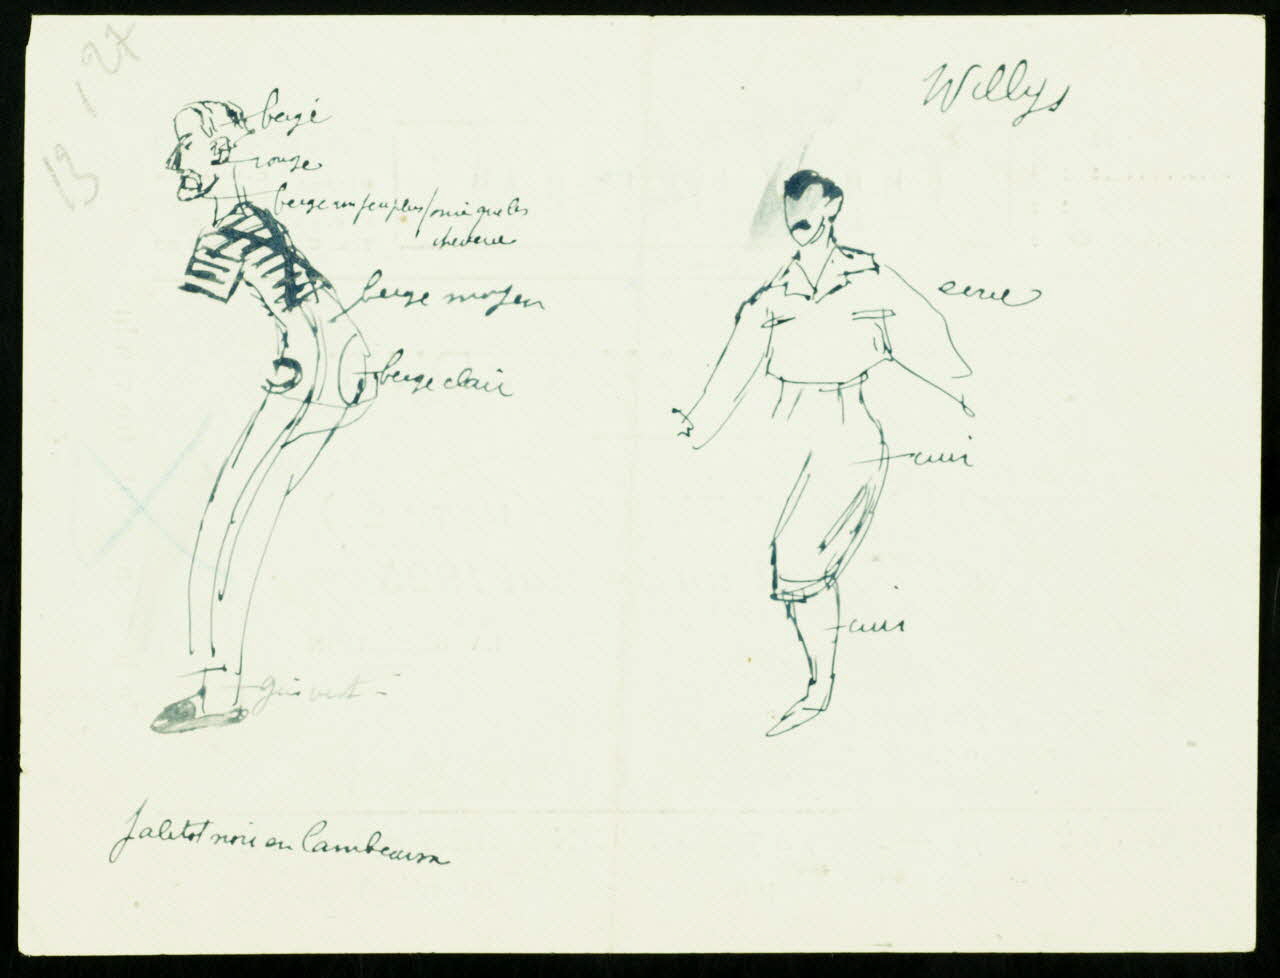 Willys
beige
rouge
beige un peu plus foncé que les
cheveux
beige moyen
beige clair
gris vert -
paletot noir en lambeaux
écrue
cuir
cuir
27
13